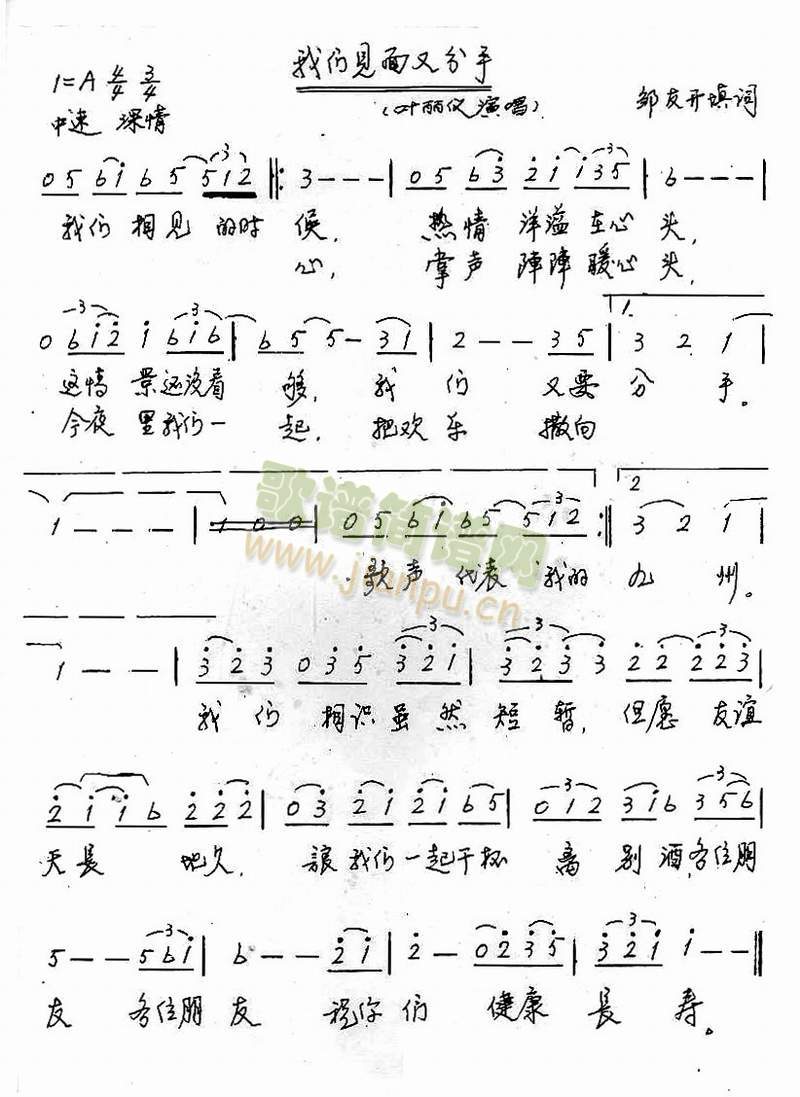 我们见面又分手
1=A 4/4 3/4
(叶丽仪演唱)
邹友开填词
中速 深情
0 5 6 i 6 5 5 1 2 ‖: 3 - - - | 0 5 6 3 2 i i 3 5 | 6 - - - |
我们 相见 的时 候, 热情 洋溢 在心 头,
心, 掌声 陣陣 暖心 头,
0 6 i 2 i 6 i 6 | 6 5 5 - 3 1 | 2 - - 3 5 | 1. 3 2 1 |
这情 景还没看 够, 我 们 又要 分 手。
今夜 里我们一 起, 把欢 乐 撒向
1 - - - | 1 0 0 | 0 5 6 i 6 5 5 1 2 :‖ 2 3 2 1 |
歌谱简谱网
www.jianpu.cn
歌声 代表 我的 九 州。
1 - - | 3 2 3 0 3 5 3 2 i | 3 2 3 3 2 2 2 2 3 |
我 们 相识 虽 然 短 暂, 但愿 友谊
2 i i 6 2 2 2 | 0 3 2 i 2 i 6 5 | 0 1 2 3 1 6 3 5 6 |
天長 地久, 讓我们一起干杯 离 别 酒,各位朋
5 - - 5 6 i | 6 - - 2 i | 2 - 0 2 3 5 | 3 2 i i - - ‖
友 各位朋 友 祝你 们 健康 長 寿。